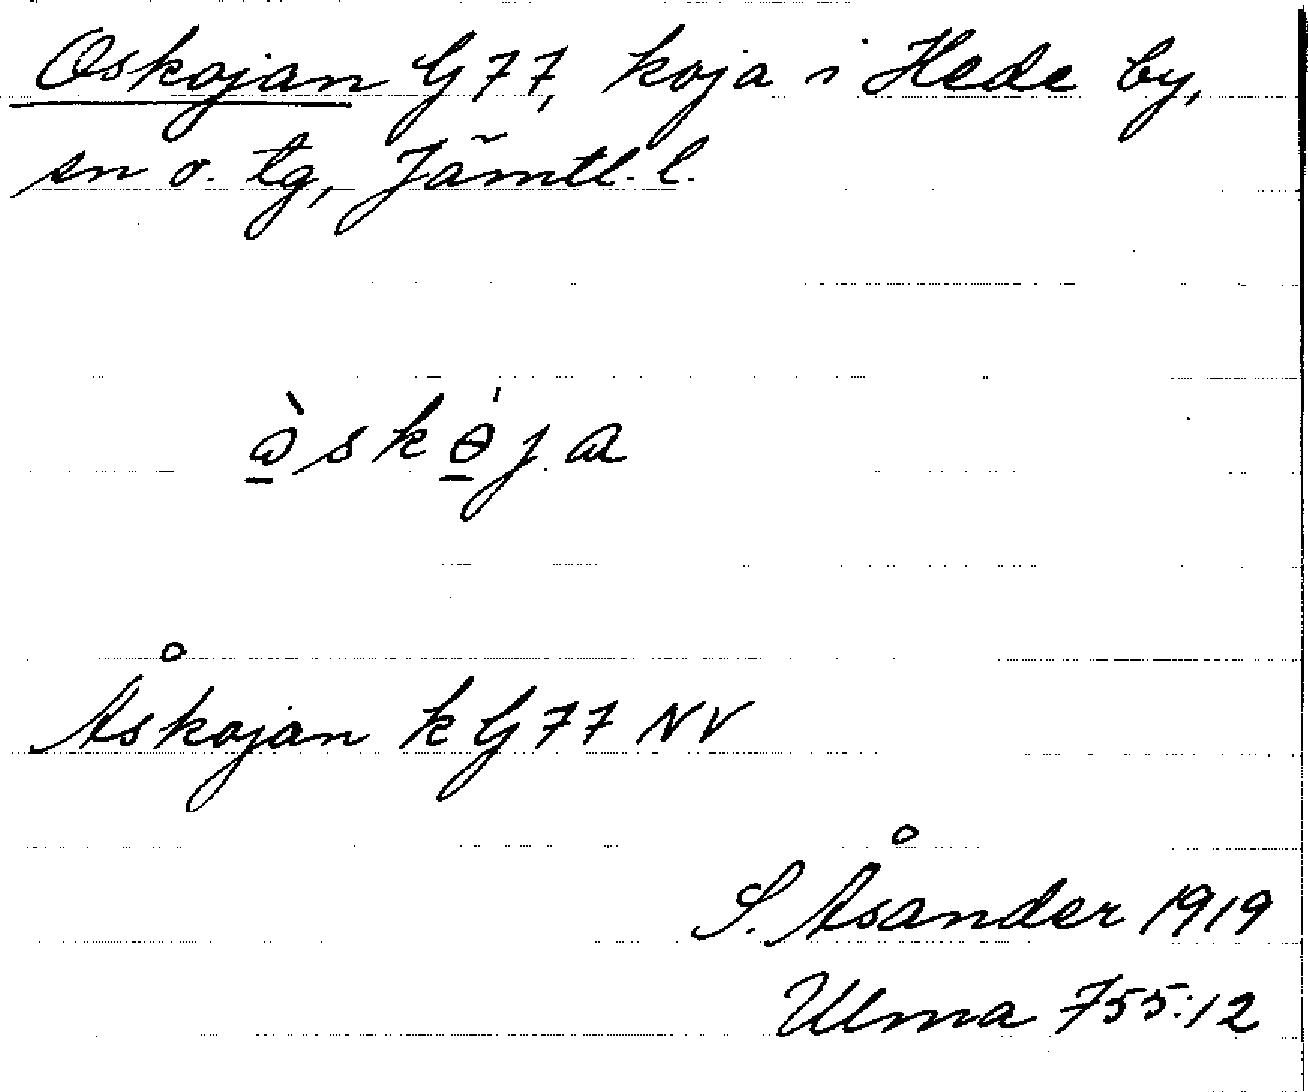 Oskojan G77, koja i Hede by,
sn o. tg, Jämtl. l.
Åskojan k G77 NV
S. Åsander 1919
Ulma 755:12